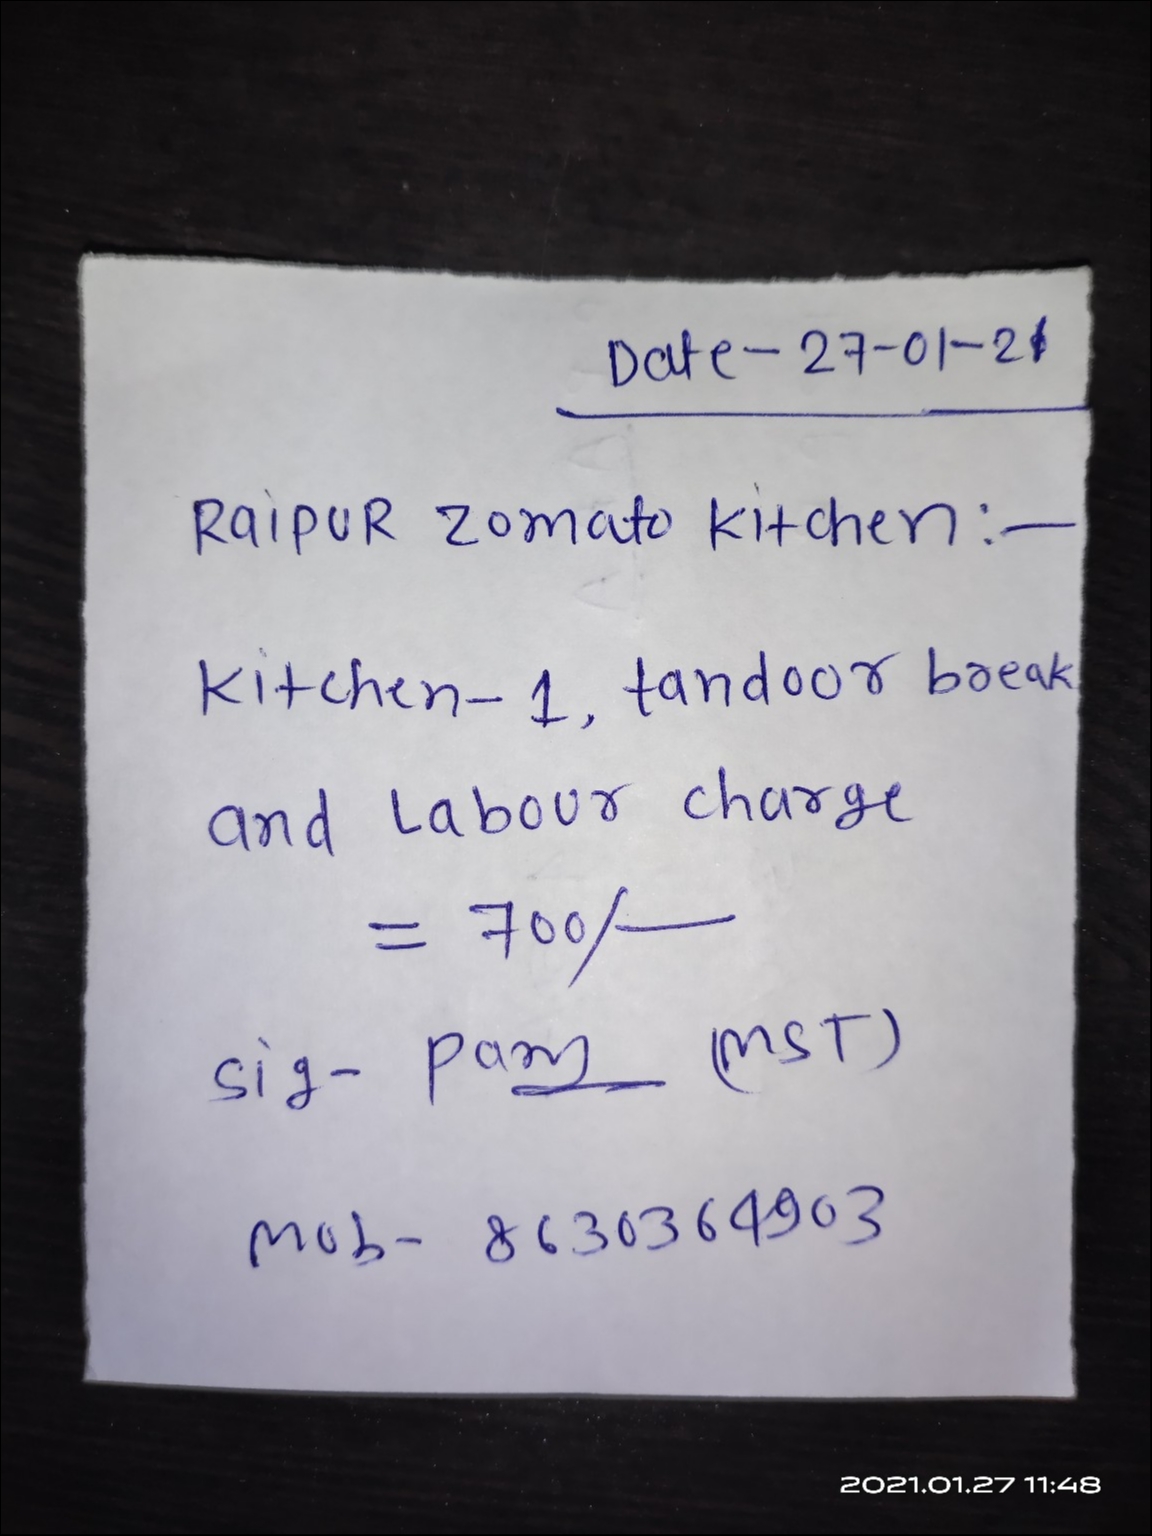 Date- 27-01-21
Raipur Zomato Kitchen:-
Kitchen-1, tandoor break
and Labour charge
= 700/-
Sig- Pam (MST)
Mob- 8630364903
2021.01.27 11:48